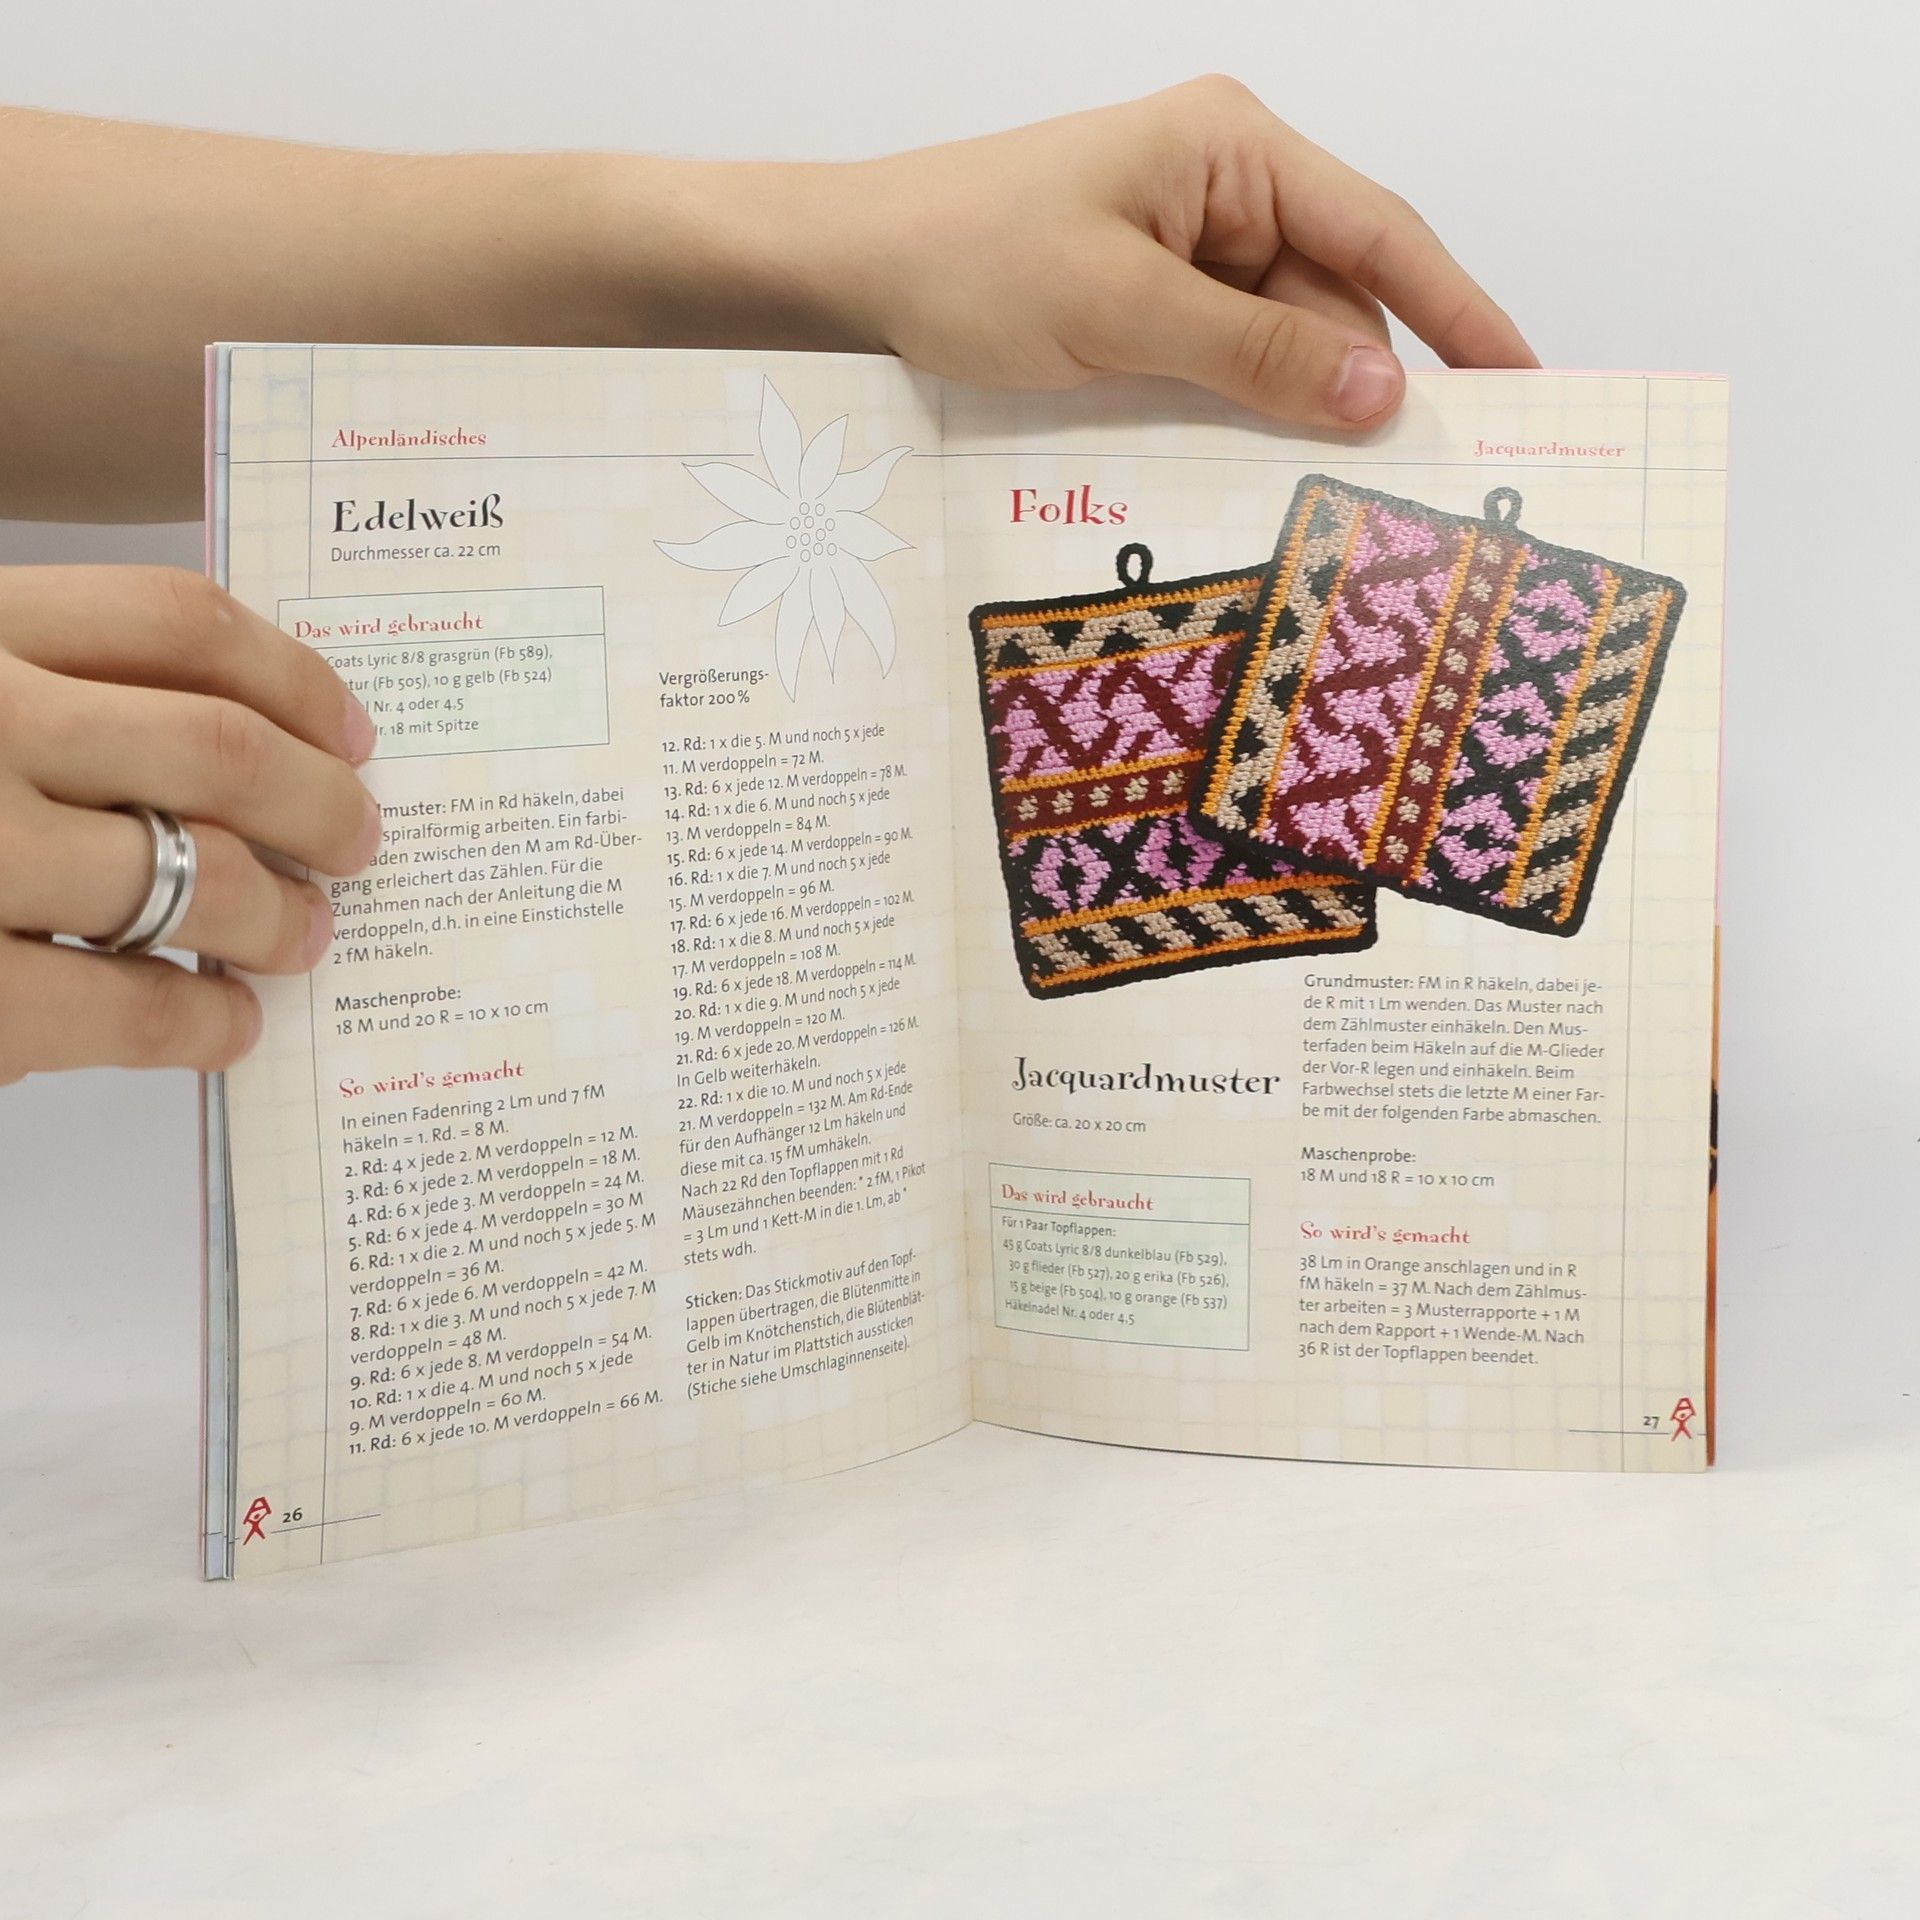 Alpenländisches
Edelweiß
Durchmesser ca. 22 cm
Das wird gebraucht
Coats Lyric 8/8 grasgrün (Fb 589),
(Fb 505), 10 g gelb (Fb 524)
Nr. 4 oder 4,5
18 mit Spitze
FM in Rd häkeln, dabei
spiralförmig arbeiten. Ein farbi-
zwischen den M am Rd-Über-
gang erleichert das Zählen. Für die
Zunahmen nach der Anleitung die M
verdoppeln, d.h. in eine Einstichstelle
2 fM häkeln.
Maschenprobe:
18 M und 20 R = 10 x 10 cm
So wird's gemacht
In einen Fadenring 2 Lm und 7 fM
häkeln = 1. Rd. = 8 M.
2. Rd: 4 x jede 2. M verdoppeln = 12 M.
3. Rd: 6 x jede 2. M verdoppeln = 18 M.
4. Rd: 6 x jede 3. M verdoppeln = 24 M.
5. Rd: 6 x jede 4. M verdoppeln = 30 M
6. Rd: 1 x die 2. M und noch 5 x jede 5. M
verdoppeln = 36 M.
7. Rd: 6 x jede 6. M verdoppeln = 42 M.
8. Rd: 1 x die 3. M und noch 5 x jede 7. M
verdoppeln = 48 M.
9. Rd: 6 x jede 8. M verdoppeln = 54 M.
10. Rd: 1 x die 4. M und noch 5 x jede
9. M verdoppeln = 60 M.
11. Rd: 6 x jede 10. M verdoppeln = 66 M.
26
Vergrößerungs-
faktor 200 %
12. Rd: 1 x die 5. M und noch 5 x jede
11. M verdoppeln = 72 M.
13. Rd: 6 x jede 12. M verdoppeln = 78 M.
14. Rd: 1 x die 6. M und noch 5 x jede
13. M verdoppeln = 84 M.
15. Rd: 6 x jede 14. M verdoppeln = 90 M.
16. Rd: 1 x die 7. M und noch 5 x jede
15. M verdoppeln = 96 M.
17. Rd: 6 x jede 16. M verdoppeln = 102 M.
18. Rd: 1 x die 8. M und noch 5 x jede
17. M verdoppeln = 108 M.
19. Rd: 6 x jede 18. M verdoppeln = 114 M.
20. Rd: 1 x die 9. M und noch 5 x jede
19. M verdoppeln = 120 M.
21. Rd: 6 x jede 20. M verdoppeln = 126 M.
In Gelb weiterhäkeln.
22. Rd: 1 x die 10. M und noch 5 x jede
21. M verdoppeln = 132 M. Am Rd-Ende
für den Aufhänger 12 Lm häkeln und
diese mit ca. 15 fM umhäkeln.
Nach 22 Rd den Topflappen mit 1 Rd
Mäusezähnchen beenden: * 2 fM, 1 Pikot
= 3 Lm und 1 Kett-M in die 1. Lm, ab *
stets wdh.
Sticken: Das Stickmotiv auf den Topf-
lappen übertragen, die Blütenmitte in
Gelb im Knötchenstich, die Blütenblät-
ter in Natur im Plattstich aussticken
(Stiche siehe Umschlaginnenseite).
Jacquardmuster
Folks
Jacquardmuster
Größe: ca. 20 x 20 cm
Das wird gebraucht
Für 1 Paar Topflappen:
45 g Coats Lyric 8/8 dunkelblau (Fb 529),
30 g flieder (Fb 527), 20 g erika (Fb 526),
15 g beige (Fb 504), 10 g orange (Fb 537)
Häkelnadel Nr. 4 oder 4,5
Grundmuster: FM in R häkeln, dabei je-
de R mit 1 Lm wenden. Das Muster nach
dem Zählmuster einhäkeln. Den Mus-
terfaden beim Häkeln auf die M-Glieder
der Vor-R legen und einhäkeln. Beim
Farbwechsel stets die letzte M einer Far-
be mit der folgenden Farbe abmaschen.
Maschenprobe:
18 M und 18 R = 10 x 10 cm
So wird's gemacht
38 Lm in Orange anschlagen und in R
fM häkeln = 37 M. Nach dem Zählmus-
ter arbeiten = 3 Musterrapporte + 1 M
nach dem Rapport + 1 Wende-M. Nach
36 R ist der Topflappen beendet.
27